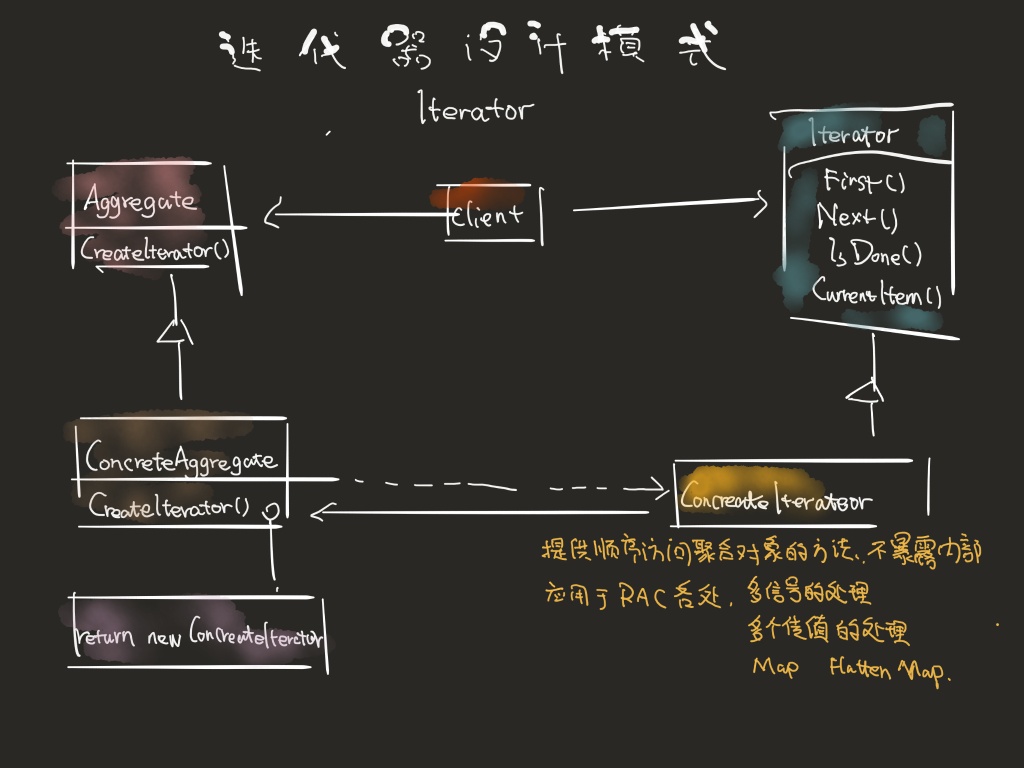 迭代器设计模式
Iterator
Aggregate
CreateIterator()
Client
Iterator
First()
Next()
IsDone()
CurrentItem()
ConcreteAggregate
CreateIterator()
ConcreateIterateor
return new ConcreateIterctor
提供顺序访问聚合对象的方法、不暴露内部
应用于RAC各处.
多信号的处理
多个值的处理
Map Flatten Map.